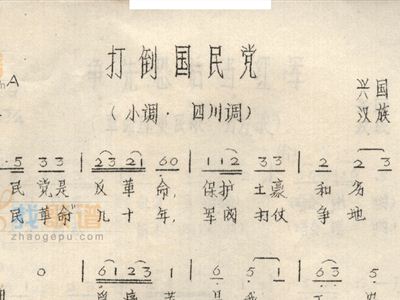 打倒国民党
（小调·四川调）
兴国
汉族
5 33 | 23 21 60 | 112 33 | 2 23
民 党是 反 革 命, 保护 土豪 和 劣
民 革命" 九 十 年, 军阀 打仗 争 地
找歌谱
zhaogepu.com
0 | 6123 1 | 6 5 1 | 63 5